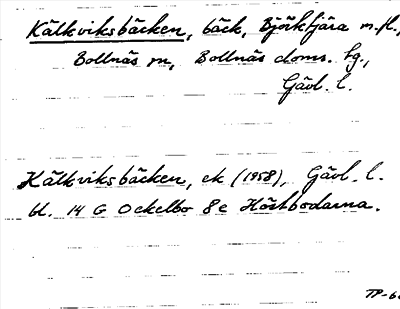 Kälkviksbäcken, bäck, Björkfjära m.fl.,
Bollnäs sn, Bollnäs doms. hg.,
Gävl. l.
Kälkviksbäcken, ek (1958), Gävl. l.
bl. 14 G Ockelbo 8e Höstbodarna.
TP-6